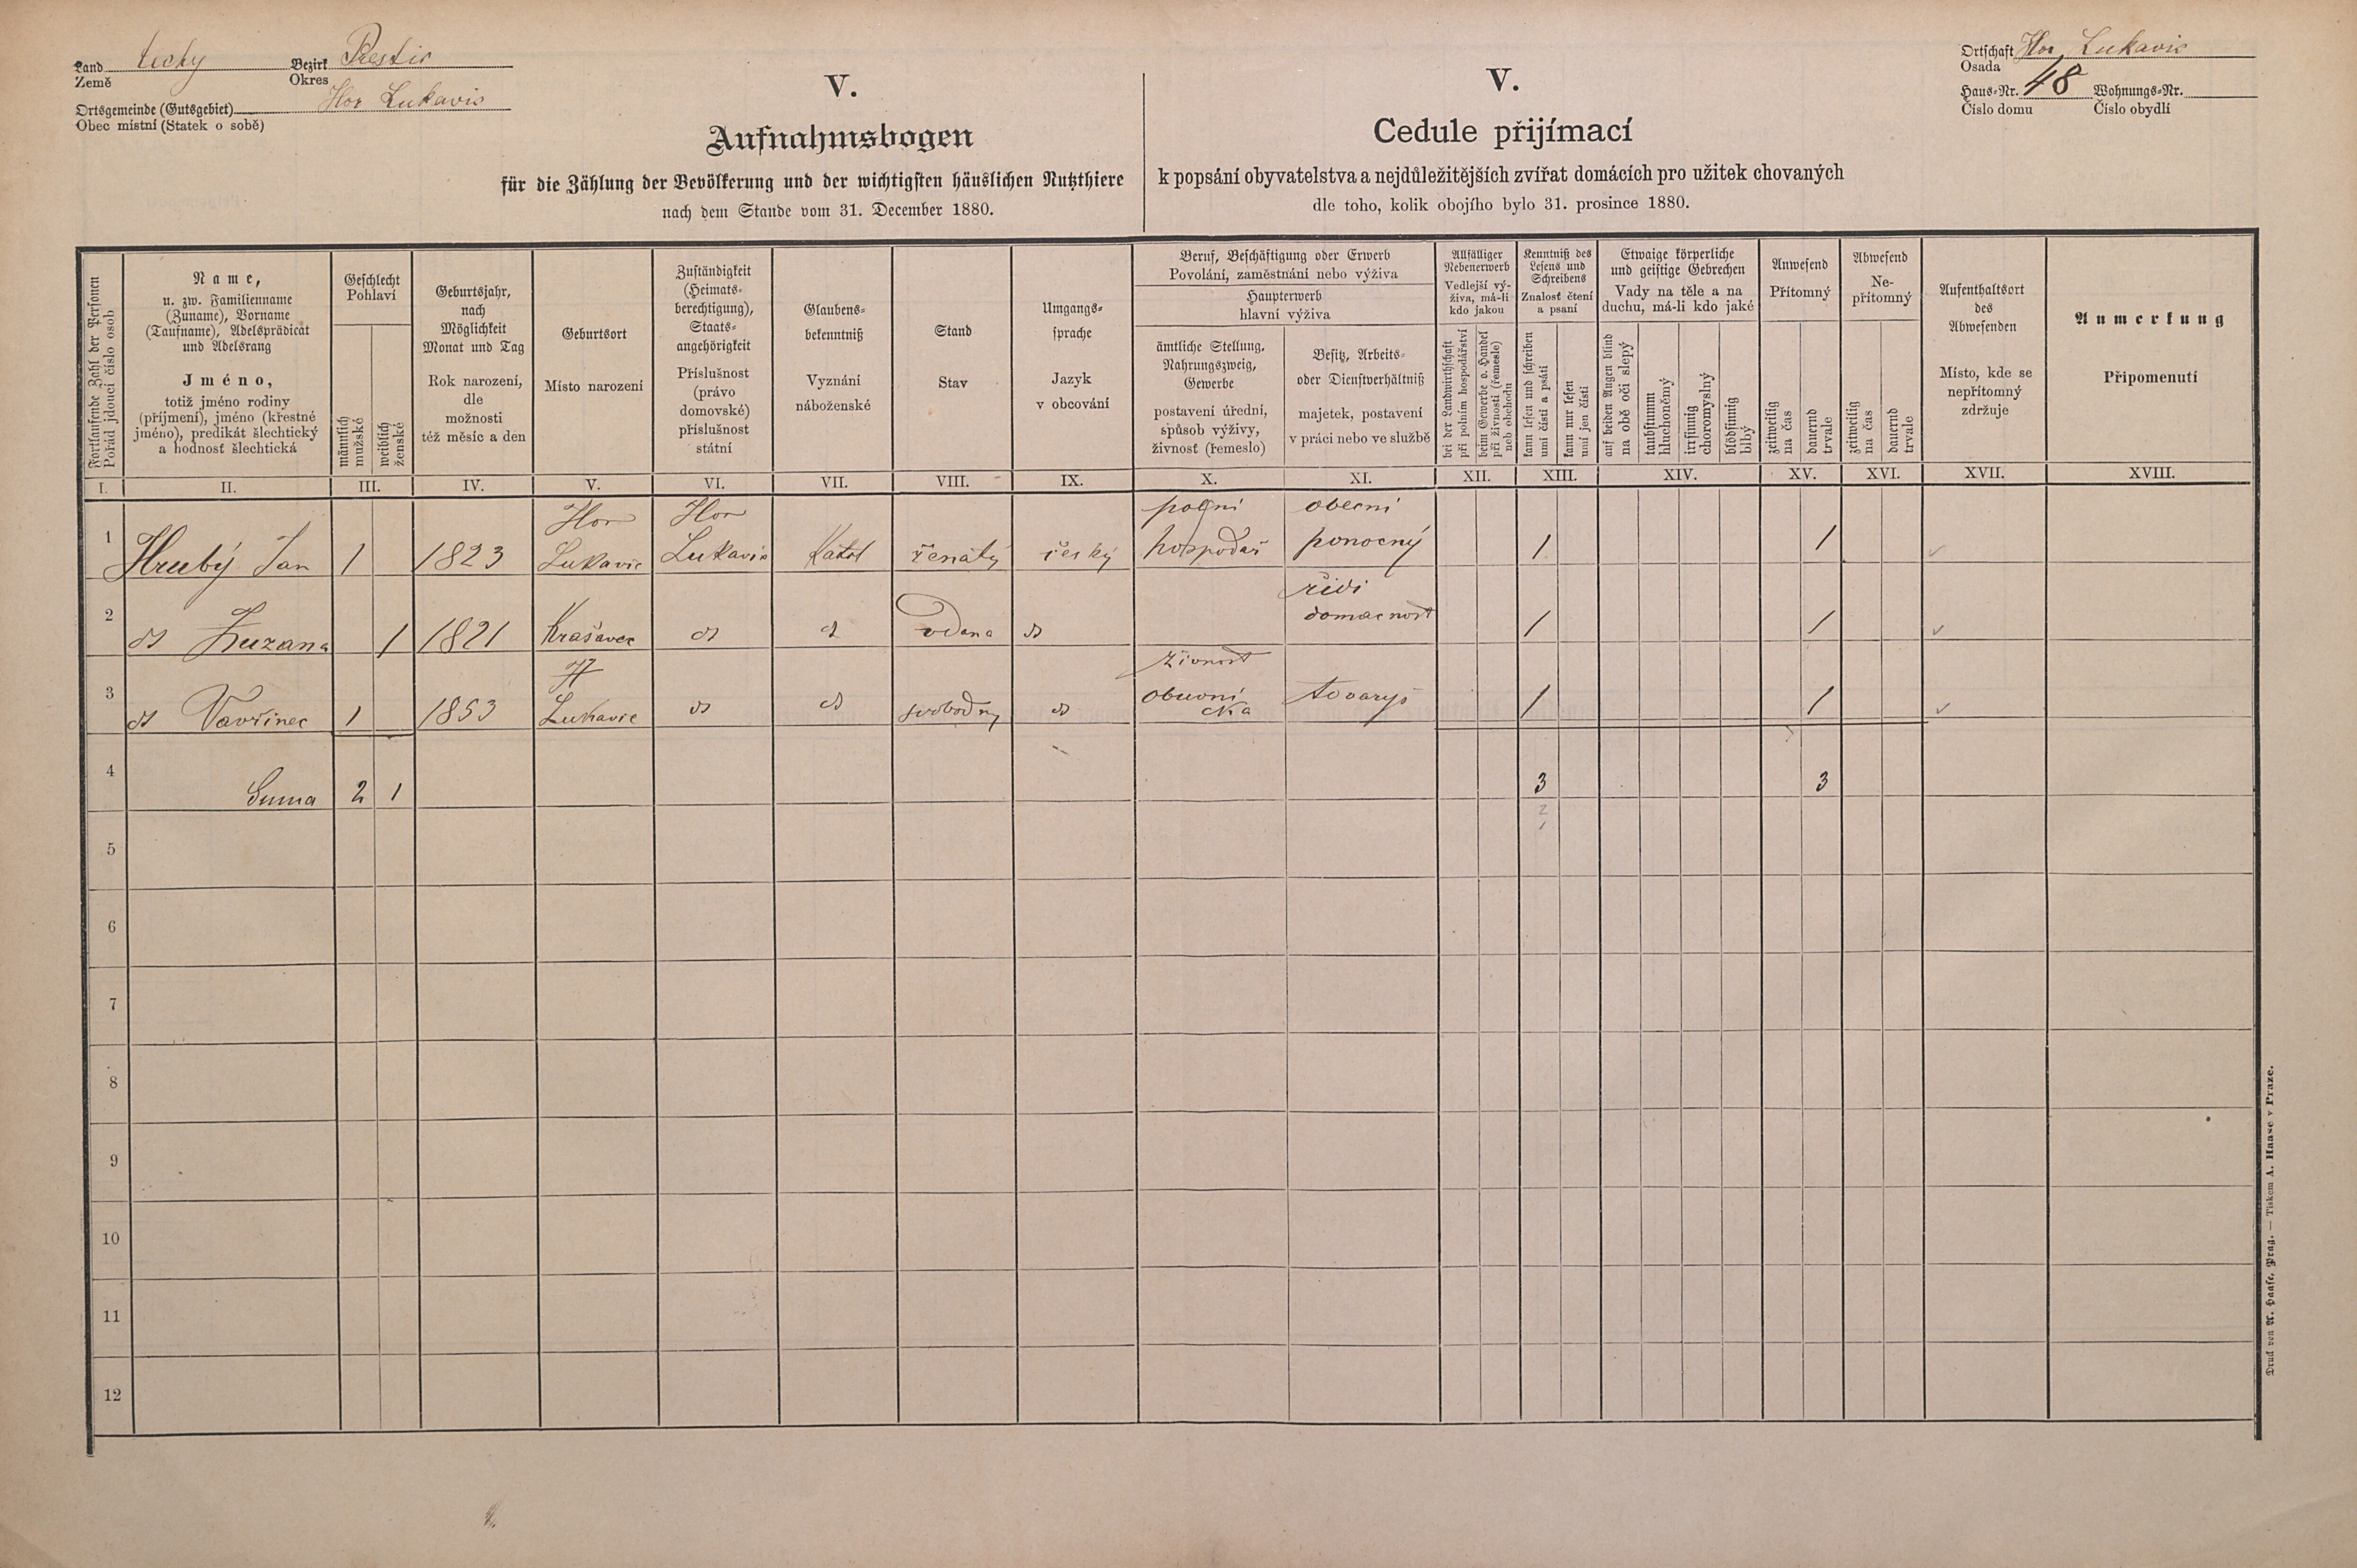 Land Čechy Bezirk Prestic
Země Okres
Ortsgemeinde (Gutsgebiet) Hor Lukavic
Obec místní (Statek o sobě)
V.
Aufnahmsbogen
für die Zählung der Bevölkerung und der wichtigsten häuslichen Nutzthiere
nach dem Stande vom 31. December 1880.
V.
Cedule přijímací
k popsání obyvatelstva a nejdůležitějších zvířat domácích pro užitek chovaných
dle toho, kolik obojího bylo 31. prosince 1880.
Ortschaft Hor Lukavic
Osada
Haus-Nr. 48 Wohnungs-Nr.
Číslo domu Číslo obydlí
Fortlaufende Zahl der Personen
Pořád jdoucí číslo osob
Name,
u. zw. Familienname
(Zuname), Vorname
(Taufname), Adelsprädicat
und Adelsrang
Jméno,
totiž jméno rodiny
(příjmení), jméno (křestné
jméno), predikát šlechtický
a hodnost šlechtická
Geschlecht
Pohlaví
männlich
mužské
weiblich
ženské
Geburtsjahr,
nach
Möglichkeit
Monat und Tag
Rok narození,
dle
možnosti
též měsíc a den
Geburtsort
Místo narození
Zuständigkeit
(Heimats-
berechtigung),
Staats-
angehörigkeit
Příslušnost
(právo
domovské)
příslušnost
státní
Glaubens-
bekenntniß
Vyznání
náboženské
Stand
Stav
Umgangs-
sprache
Jazyk
v obcování
Beruf, Beschäftigung oder Erwerb
Povolání, zaměstnání nebo výživa
Haupterwerb
hlavní výživa
ämtliche Stellung,
Nahrungszweig,
Gewerbe
postavení úřední,
spůsob výživy,
živnost (řemeslo)
Besitz, Arbeits-
oder Dienstverhältniß
majetek, postavení
v práci nebo ve službě
Allfälliger
Nebenerwerb
Vedlejší vý-
živa, má-li
kdo jakou
bei der Landwirthschaft
při polním hospodářství
beim Gewerbe o. Handel
při živnosti (řemesle)
neb obchodu
Kenntniß des
Lesens und
Schreibens
Znalost čtení
a psaní
kann lesen und schreiben
umí čísti a psáti
kann nur lesen
umí jen čísti
Etwaige körperliche
und geistige Gebrechen
Vady na těle a na
duchu, má-li kdo jaké
auf beiden Augen blind
na obě oči slepý
taubstumm
hluchoněmý
irrsinnig
choromyslný
blödsinnig
blbý
Anwesend
Přítomný
zeitweilig
na čas
dauernd
trvale
Abwesend
Ne-
přítomný
zeitweilig
na čas
dauernd
trvale
Aufenthaltsort
des
Abwesenden
Místo, kde se
nepřítomný
zdržuje
Anmerkung
Připomenutí
I. II. III. IV. V. VI. VII. VIII. IX. X. XI. XII. XIII. XIV. XV. XVI. XVII. XVIII.
Hor Hor polní obecní
1 Hrubý Jan 1 1823 Lukavic Lukavic Katol ženatý český hospodář ponocný 1 1
řídí
2 dt Zuzana 1 1821 Krašavec dt dt vdana dt domacnost 1 1
H živnost
3 dt Vavřinec 1 1853 Lukavic dt dt svobodny dt obuvni tovaryš 1 1
cka
4 Suma 2 1 3 3
2
1
5
6
7
8
9
10
11
12
Druck von A. Haase, Prag. — Tiskem A. Haase v Praze.